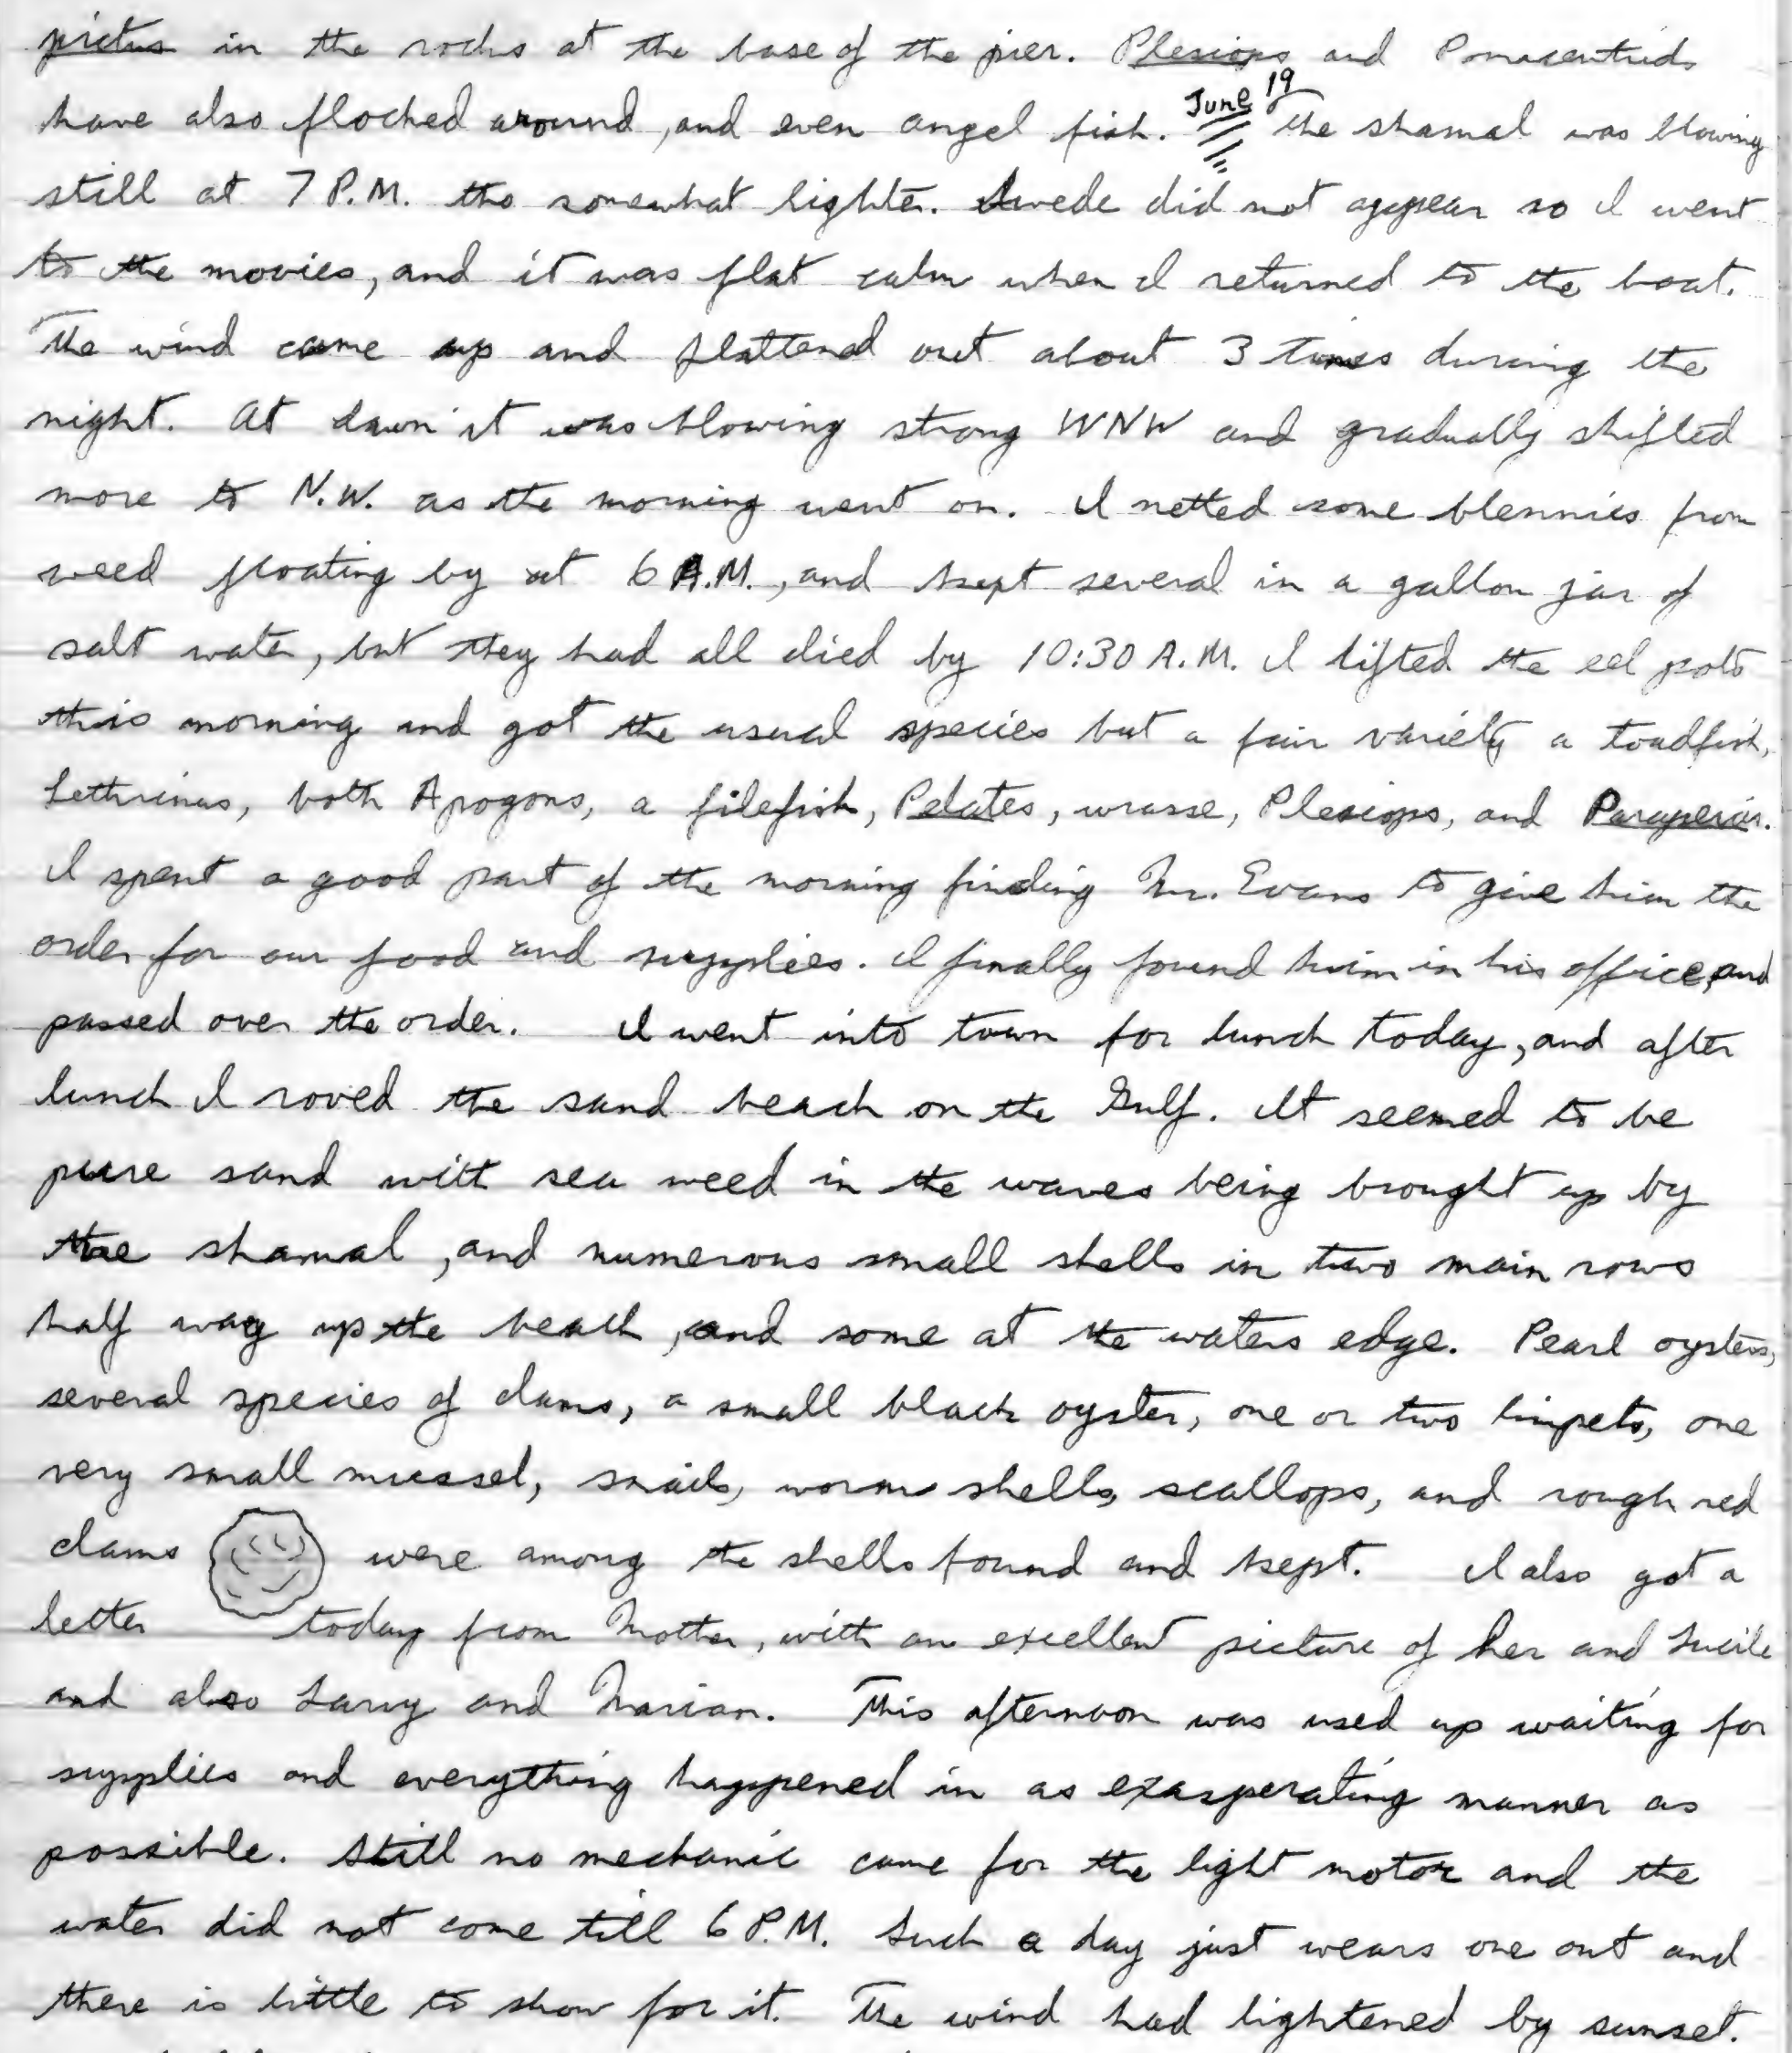 pictus in the rocks at the base of the pier. Plesiops and Pomacentrids
have also flocked around, and even angel fish. June 19 The shamal was blowing
still at 7 P.M. tho somewhat lighter. Swede did not appear so I went
to the movies, and it was flat calm when I returned to the boat.
The wind came up and flattened out about 3 times during the
night. At dawn it was blowing strong WNW and gradually shifted
more to N.W. as the morning went on. I netted some blennies from
weed floating by at 6 A.M., and kept several in a gallon jar of
salt water, but they had all died by 10:30 A.M. I lifted the eel pots
this morning and got the usual species but a fair variety a toadfish,
Lethrinus, both Apogons, a filefish, Pelates, wrasse, Plesiops, and
I spent a good part of the morning finding Mr. Evans to give him the
order for our food and supplies. I finally found him in his office, and
passed over the order. I went into town for lunch today, and after
lunch I roved the sand beach on the Gulf. It seemed to be
pure sand with sea weed in the waves being brought up by
the shamal, and numerous small shells in two main rows
half way up the beach, and some at the waters edge. Pearl oysters,
several species of clams, a small black oyster, one or two limpets, one
very small mussel, snails, worm shells, scallops, and rough red
clams were among the shells found and kept. I also got a
letter today from Mother, with an excellent picture of her and Lucile
and also Larry and Marian. This afternoon was used up waiting for
supplies and everything happened in as exasperating manner as
possible. Still no mechanic came for the light motor and the
water did not come till 6 P.M. Such a day just wears one out and
there is little to show for it. The wind had lightened by sunset.